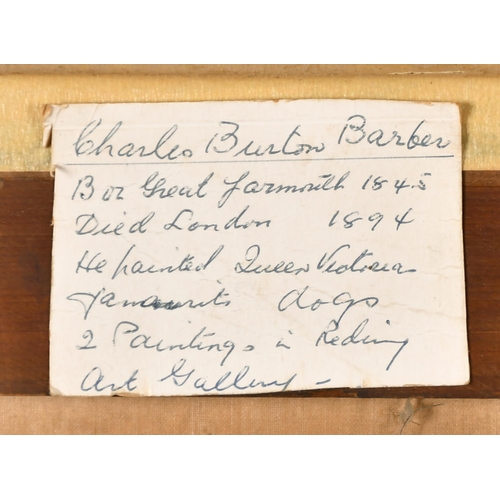 Charles Burton Barber
Bor Great Yarmouth 1845
Died London 1894
He painted Queen Victorias
dogs
2 Paintings in Reding
Art Gallery -